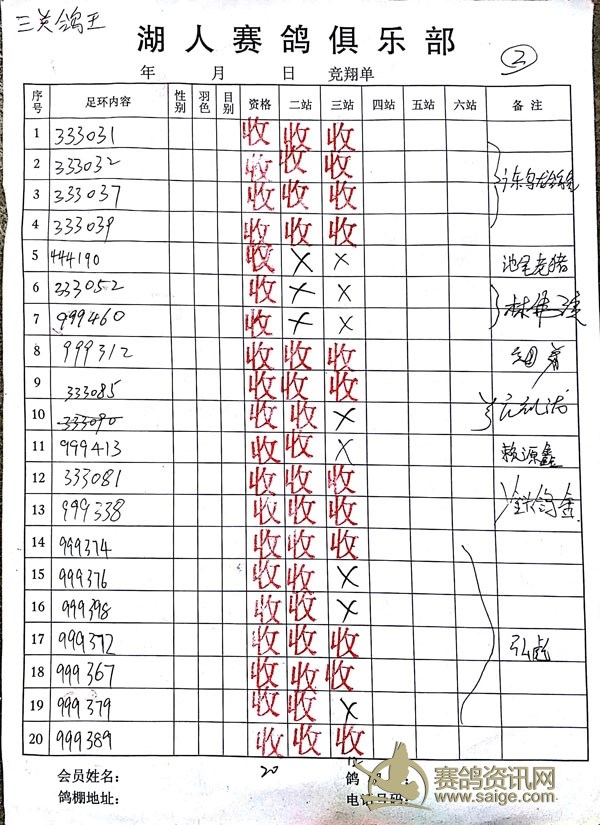 三关鸽王
湖人赛鸽俱乐部
2
年 月 日 竞翔单
序号 足环内容 性别 羽色 目别 资格 二站 三站 四站 五站 六站 备注
1 333031 收 收 收
2 333032 收 收 收
3 333037 收 收 收
4 333039 收 收 收
5 444190 收 × ×
6 333052 收 × ×
7 999460 收 × ×
8 999312 收 收 收
9 333085 收 收 收
10 333090 收 收 ×
11 999413 收 收 × 赖源鑫
12 333081 收 收 收
13 999338 收 收 收
14 999374 收 收 收
15 999376 收 收 ×
16 999398 收 收 ×
17 999372 收 收 收 弘彪
18 999367 收 收 收
19 999379 收 收 ×
20 999389 收 收 收
会员姓名： 20 鸽
鸽棚地址： 电话号码：
赛鸽资讯网
www.saige.com